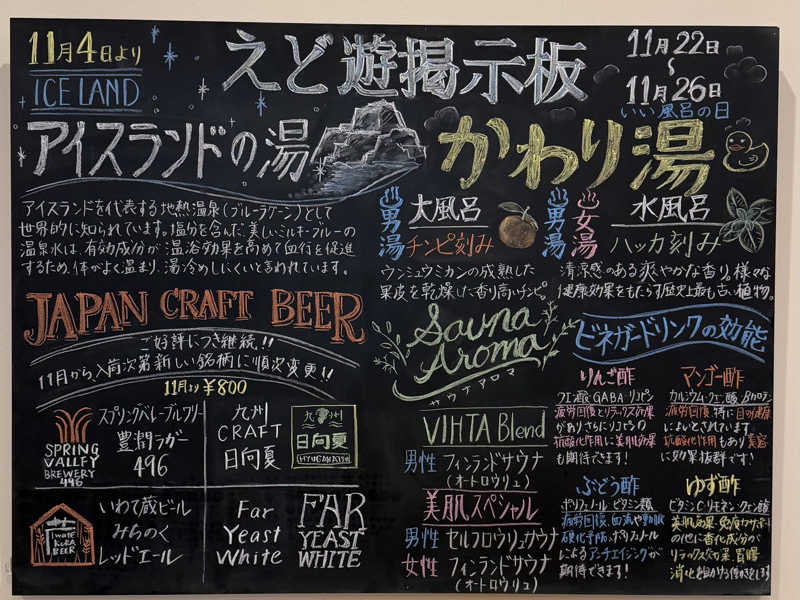 えど遊掲示板
11月4日より
ICE LAND
アイスランドの湯
アイスランドを代表する地熱温泉(ブルーラグーン)として
世界的に知られています。塩分を含んだ美しいミルキーブルーの
温泉水は、有効成分が温浴効果を高めて血行を促進
するため、体がよく温まり、湯冷めしにくいと言われています。
JAPAN CRAFT BEER
ご好評につき継続!!
11月から、入荷次第新しい銘柄に順次変更!!
11月より ¥800
SPRING
VALLEY
BREWERY
496
スプリングバレーブルワリー
豊潤ラガー
496
九州
CRAFT
日向夏
九州
日向夏
HYUGANATSU
Iwate
Kura
BEER
いわて蔵ビール
みちのく
レッドエール
Far
Yeast
White
FAR
YEAST
WHITE
11月22日
〜
11月26日
いい風呂の日
かわり湯
男湯
大風呂
チンピ刻み
ウンシュウミカンの成熟した
果皮を乾燥した香り高いチンピ。
男湯
女湯
水風呂
ハッカ刻み
清涼感のある爽やかな香り。様々な
健康効果をもたらす歴史上最も古い植物。
Sauna
Aroma
サウナアロマ
VIHTA Blend
男性 フィンランドサウナ
(オートロウリュ)
美肌スペシャル
男性 セルフロウリュサウナ
女性 フィンランドサウナ
(オートロウリュ)
ビネガードリンクの効能
りんご酢
クエン酸 GABA リコピン
疲労回復とリラックス効果
がありさらにリコピンの
抗酸化作用に美肌効果
も期待できます!
マンゴー酢
カルシウム・クエン酸 βカロテン
疲労回復、特に目の健康
によいとされています。
抗酸化作用もあり美容
に効果抜群です!
ぶどう酢
ポリフェノール ビタミン類
疲労回復、血流や動脈
硬化予防、ポリフェノール
によるアンチエイジングが
期待できます!
ゆず酢
ビタミンC リモネン クエン酸
美肌効果 免疫力サポート
の他に香化成分が
リラックス効果 胃腸
消化を助ける働きをします